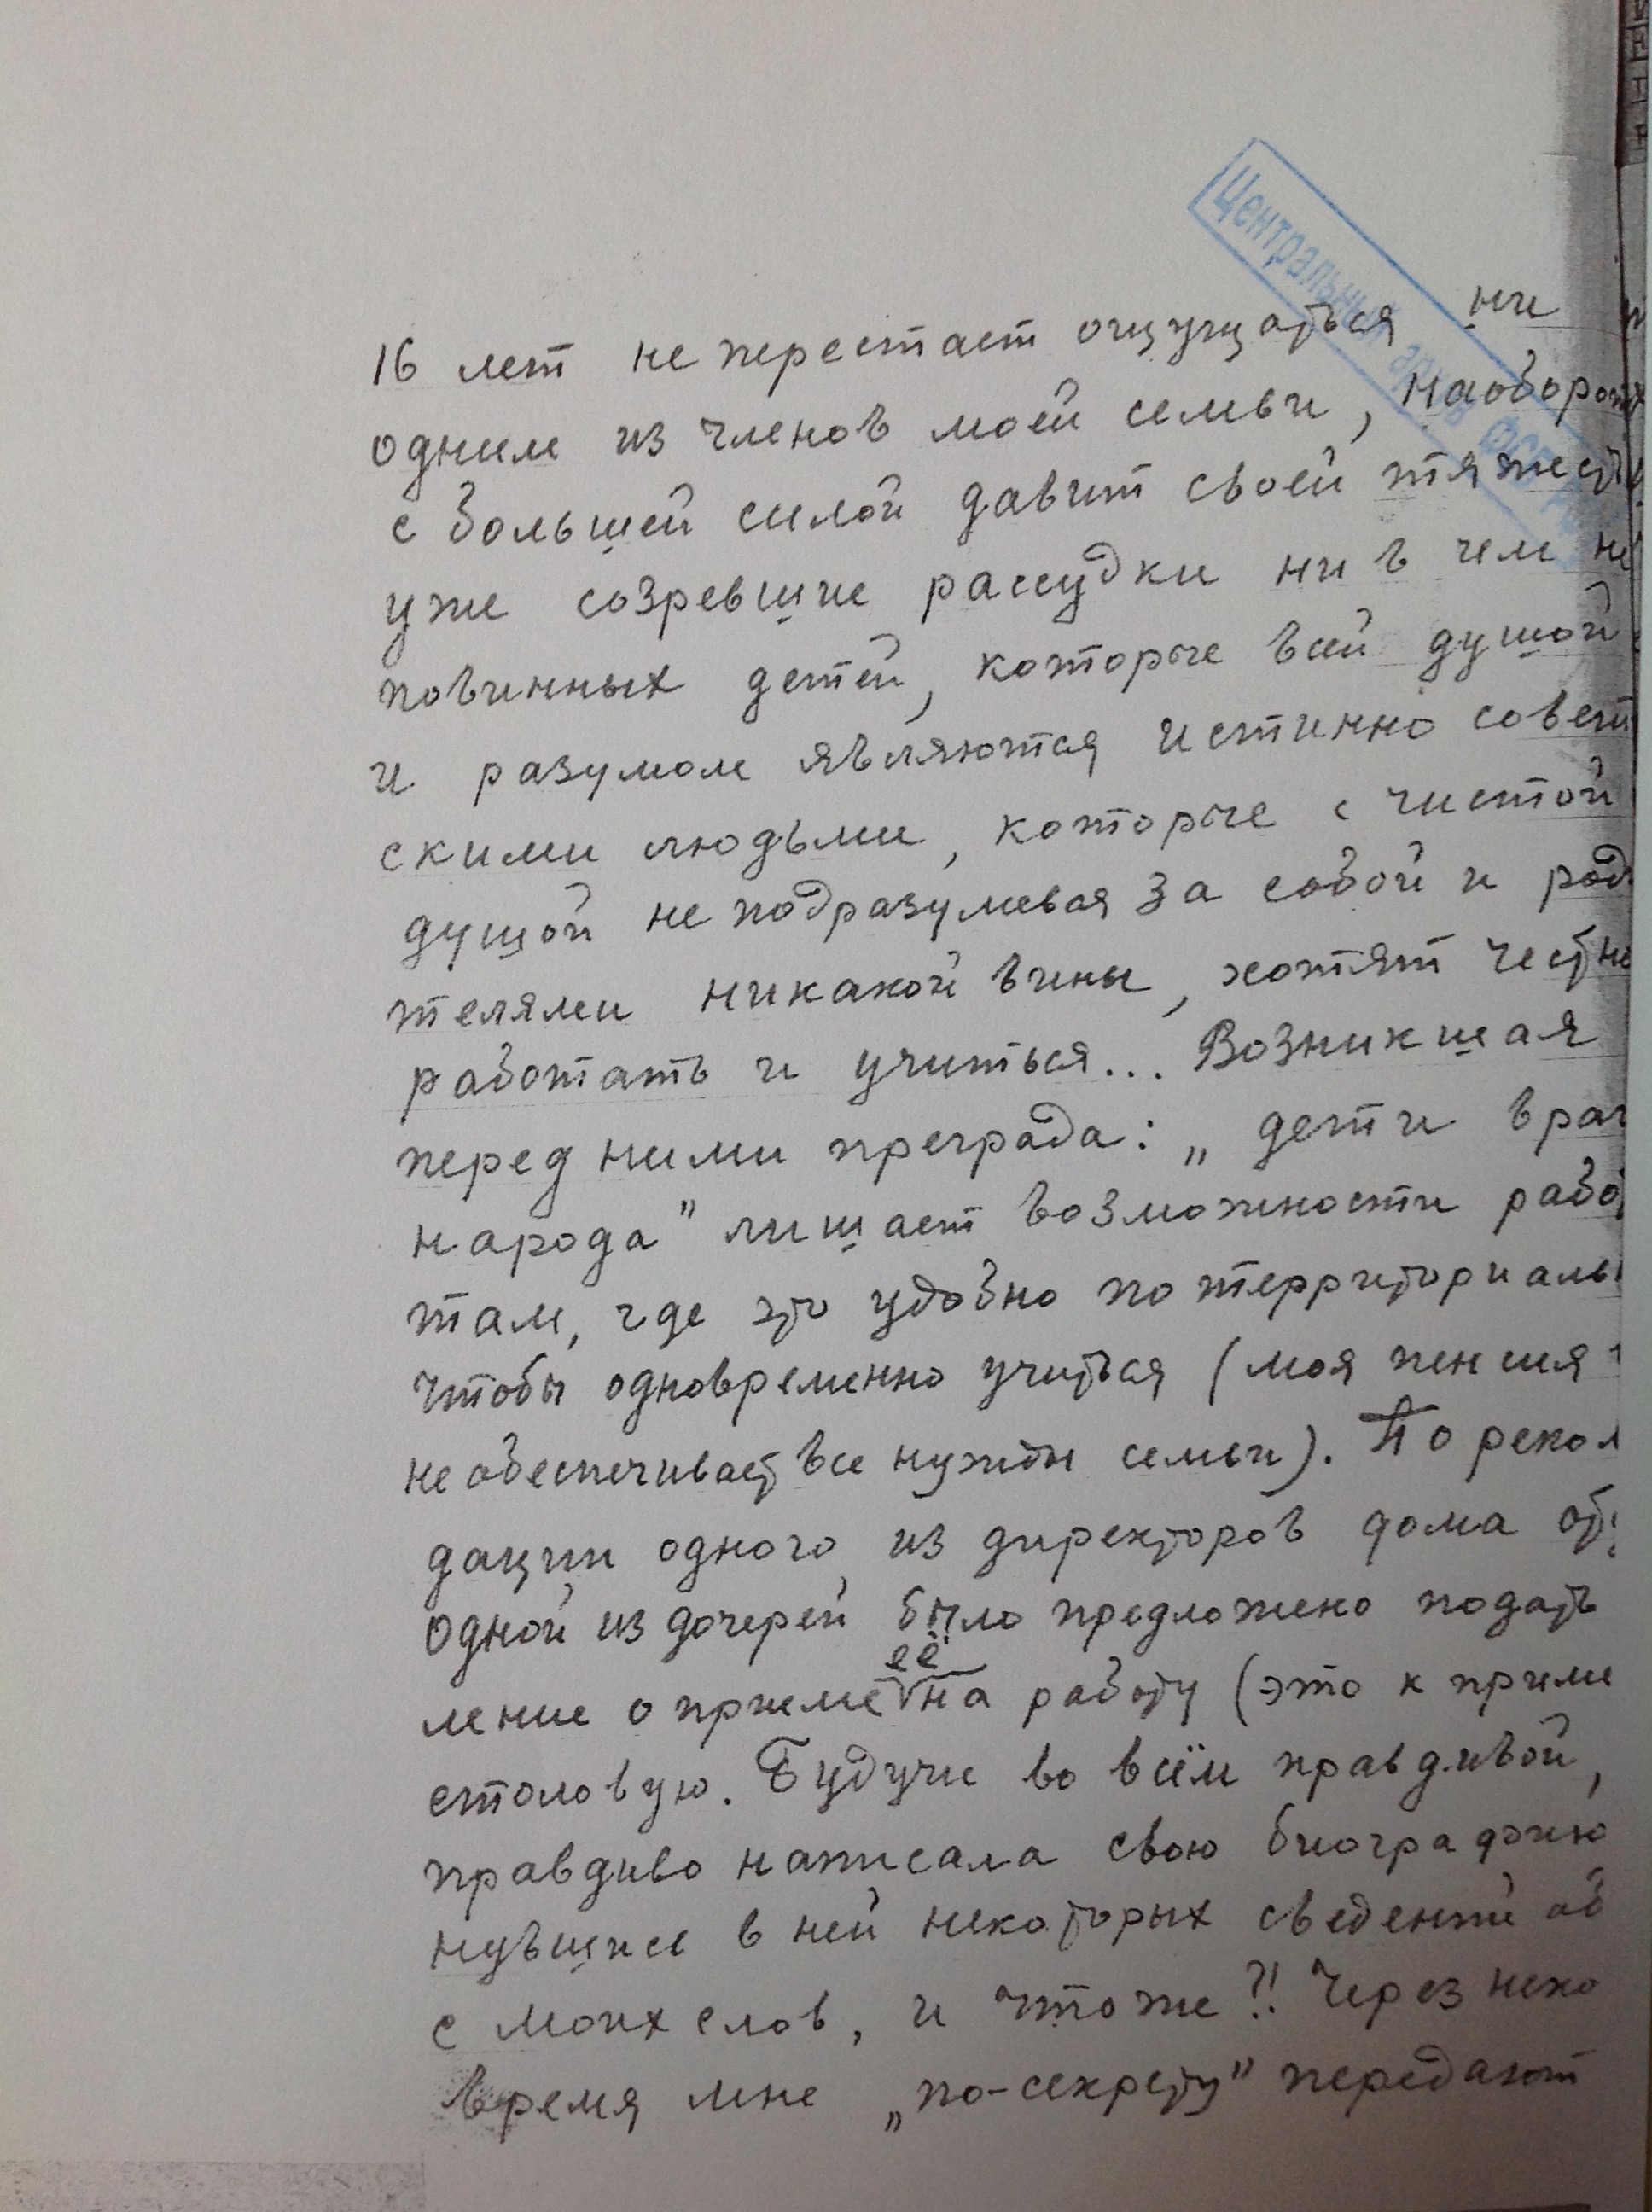 Центральный архив ФСБ
16 лет не перестает ощущаться ни
одним из членов моей семьи, наоборот
с большей силой давит своей тяжесть
уже созревшие рассудки ни в чем не
повинных детей, которые всей душой
и разумом являются истинно совет
скими людьми, которые с чистой
душой не подразумевая за собой и род
телями никакой вины, хотят честно
работать и учиться... Возникшая
перед ними преграда: „дети враг
народа" лишает возможности рабо
там, где это удобно по территориаль
чтобы одновременно учиться (моя пенсия
не обеспечивает все нужды семьи). По реком
дации одного из директоров дома от
одной из дочерей было предложено подать
её
ление о приеме на работу (это к приме
столовую. Будучи во всём правдивой,
правдиво написала свою биографию
нувшись в ней некоторых сведений об
с моих слов, и что же?! Через неко
время мне „по-секрету" передают